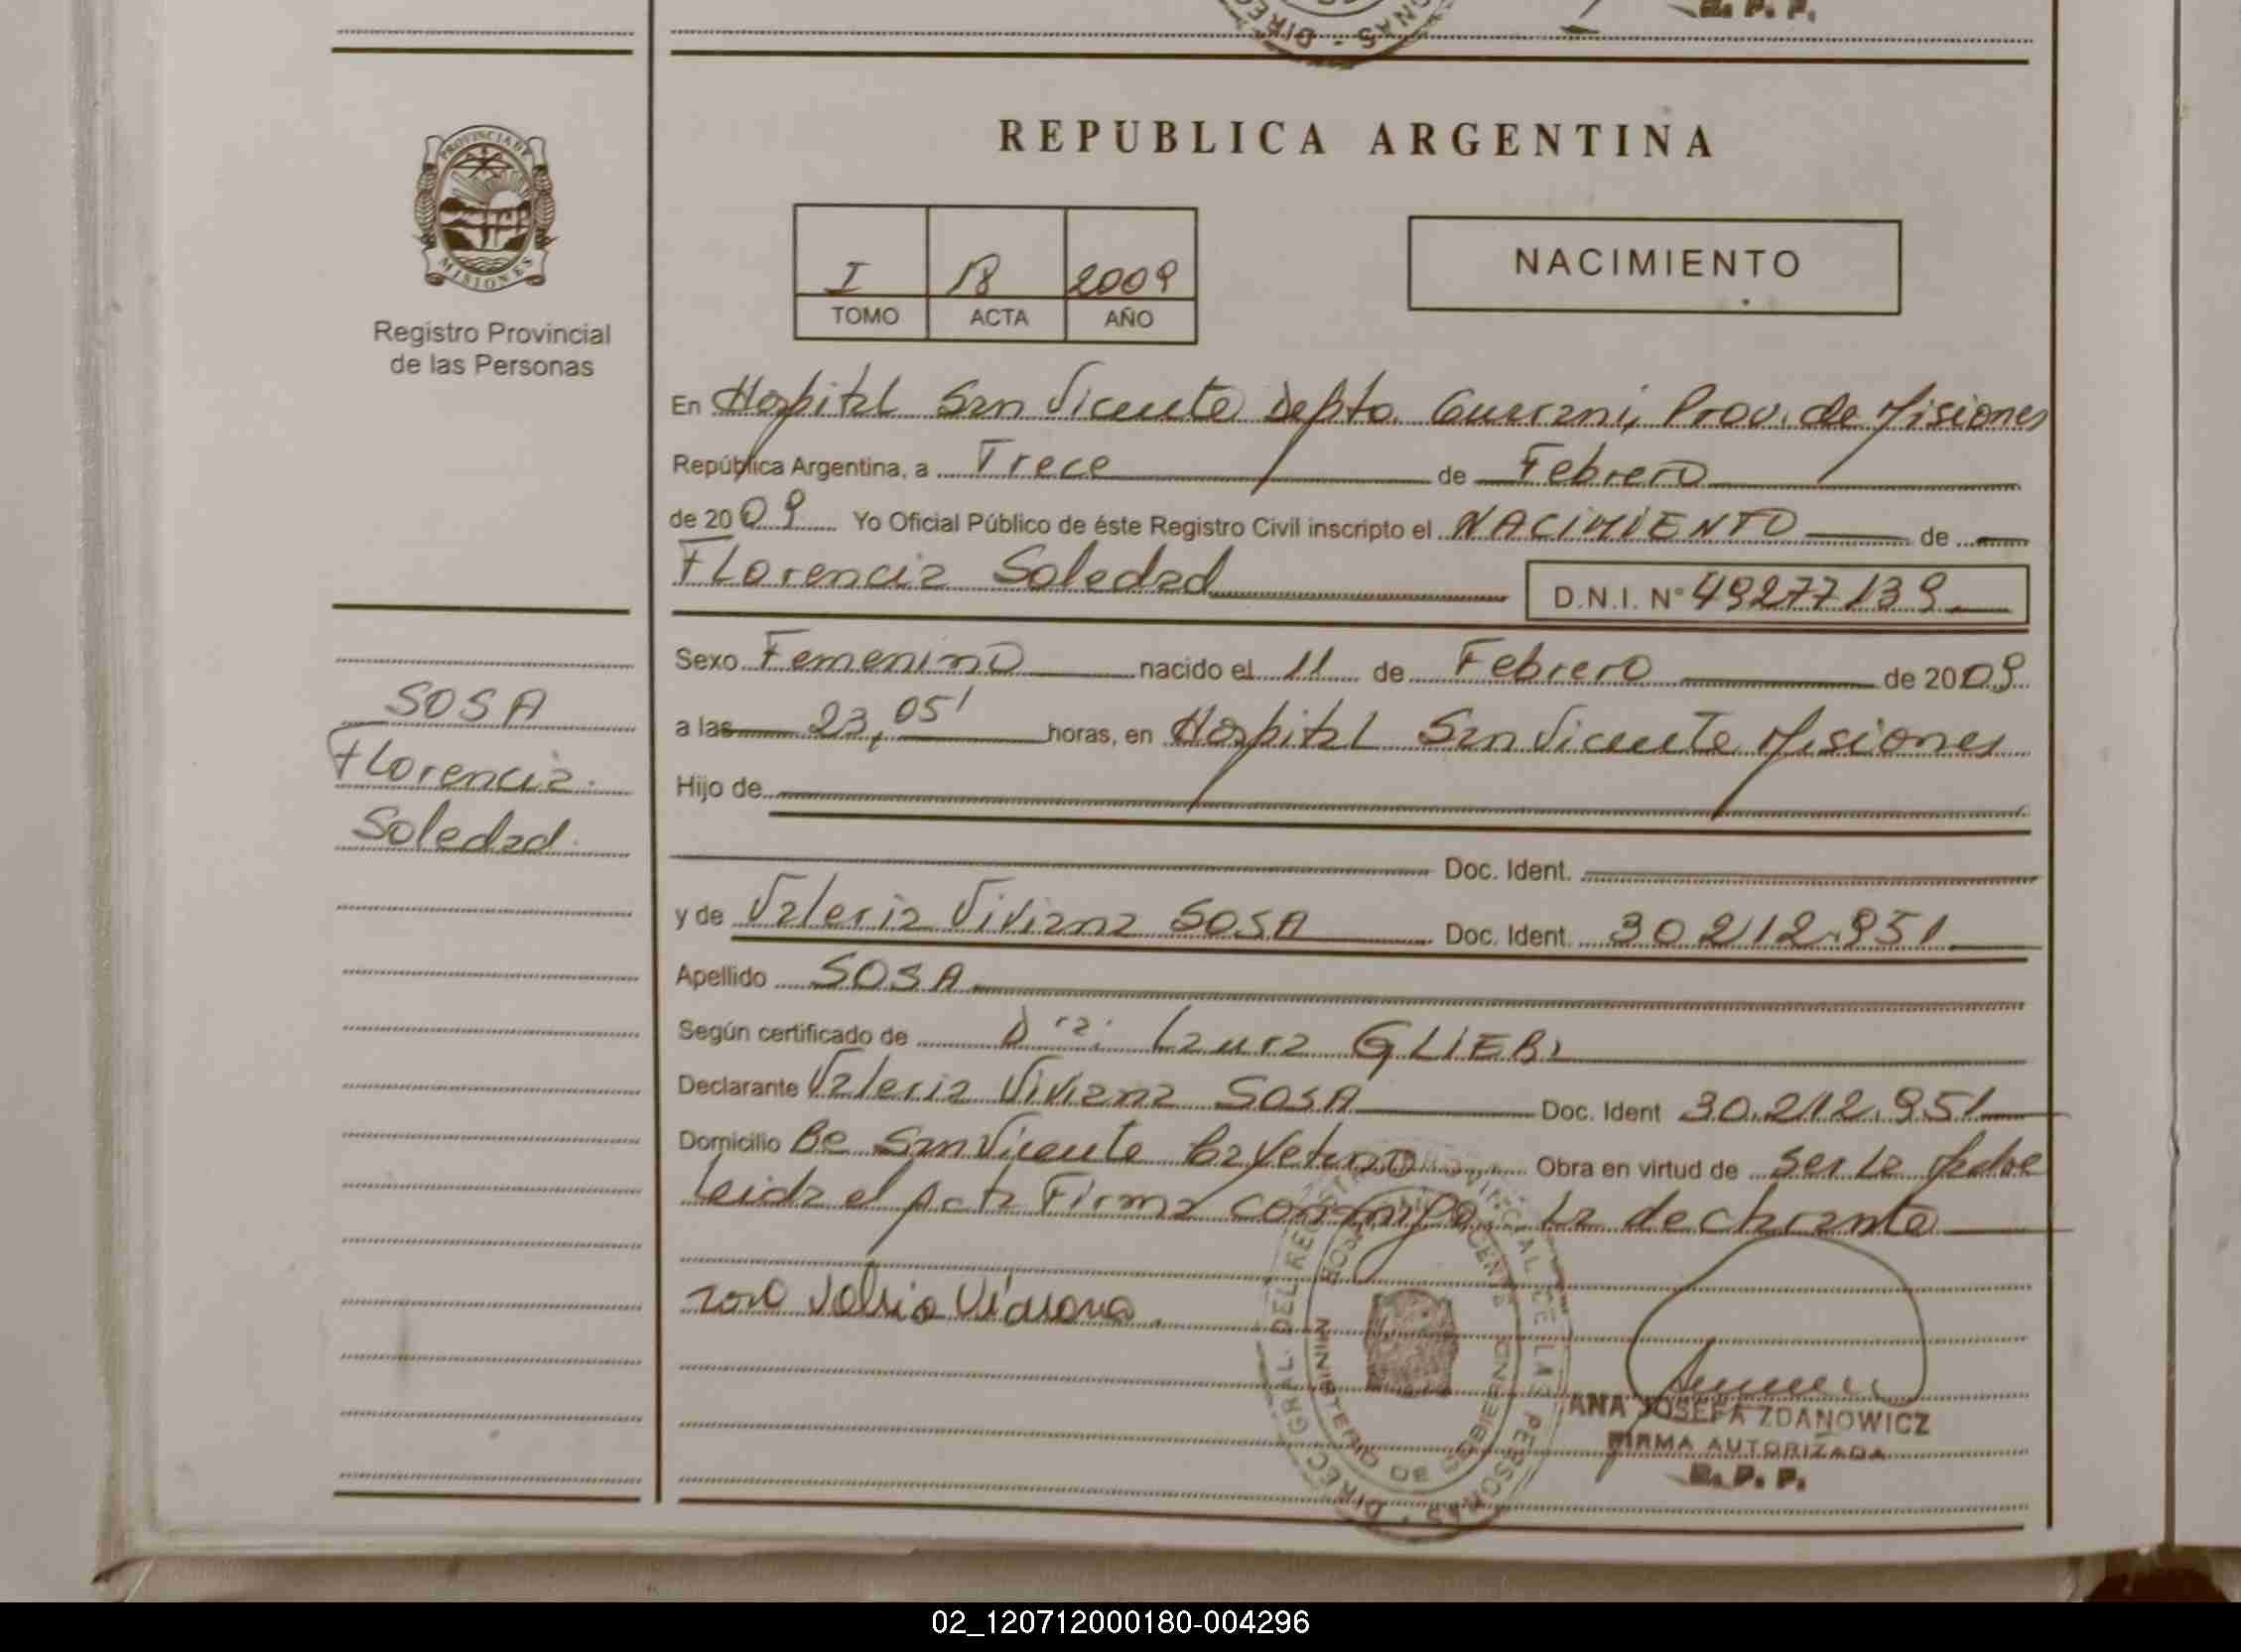 R. P. P.
REPUBLICA ARGENTINA
PROVINCIA DE
MISIONES
Registro Provincial
de las Personas
I 18 2009
TOMO ACTA AÑO
NACIMIENTO
En Hospital San Vicente Depto. Guarani, Prov. de Misiones
República Argentina, a Trece de Febrero
de 2009 Yo Oficial Público de éste Registro Civil inscripto el NACIMIENTO de
Florencia Soledad D.N.I. N° 49277139
Sexo Femenino nacido el 11 de Febrero de 2009
a las 23,05' horas, en Hospital San Vicente Misiones
Hijo de
Doc. Ident.
y de Valeria Viviana SOSA Doc. Ident. 30.212.951
Apellido SOSA
Según certificado de Dra: Laura GLIEBI
Declarante Valeria Viviana SOSA Doc. Ident 30.212.951
Domicilio Be San Vicente Cayetano Obra en virtud de ser la Madre
Leida el Acta Firma conmigo La declarante
SOSA
Florencia
Soledad
Valeria Viviana
DIREC. GRAL. DEL REGISTRO PROVINCIAL DE LAS PERSONAS
MINISTERIO DE GOBIERNO
ANA JOSEFA ZDANOWICZ
FIRMA AUTORIZADA
R. P. P.
02_120712000180-004296